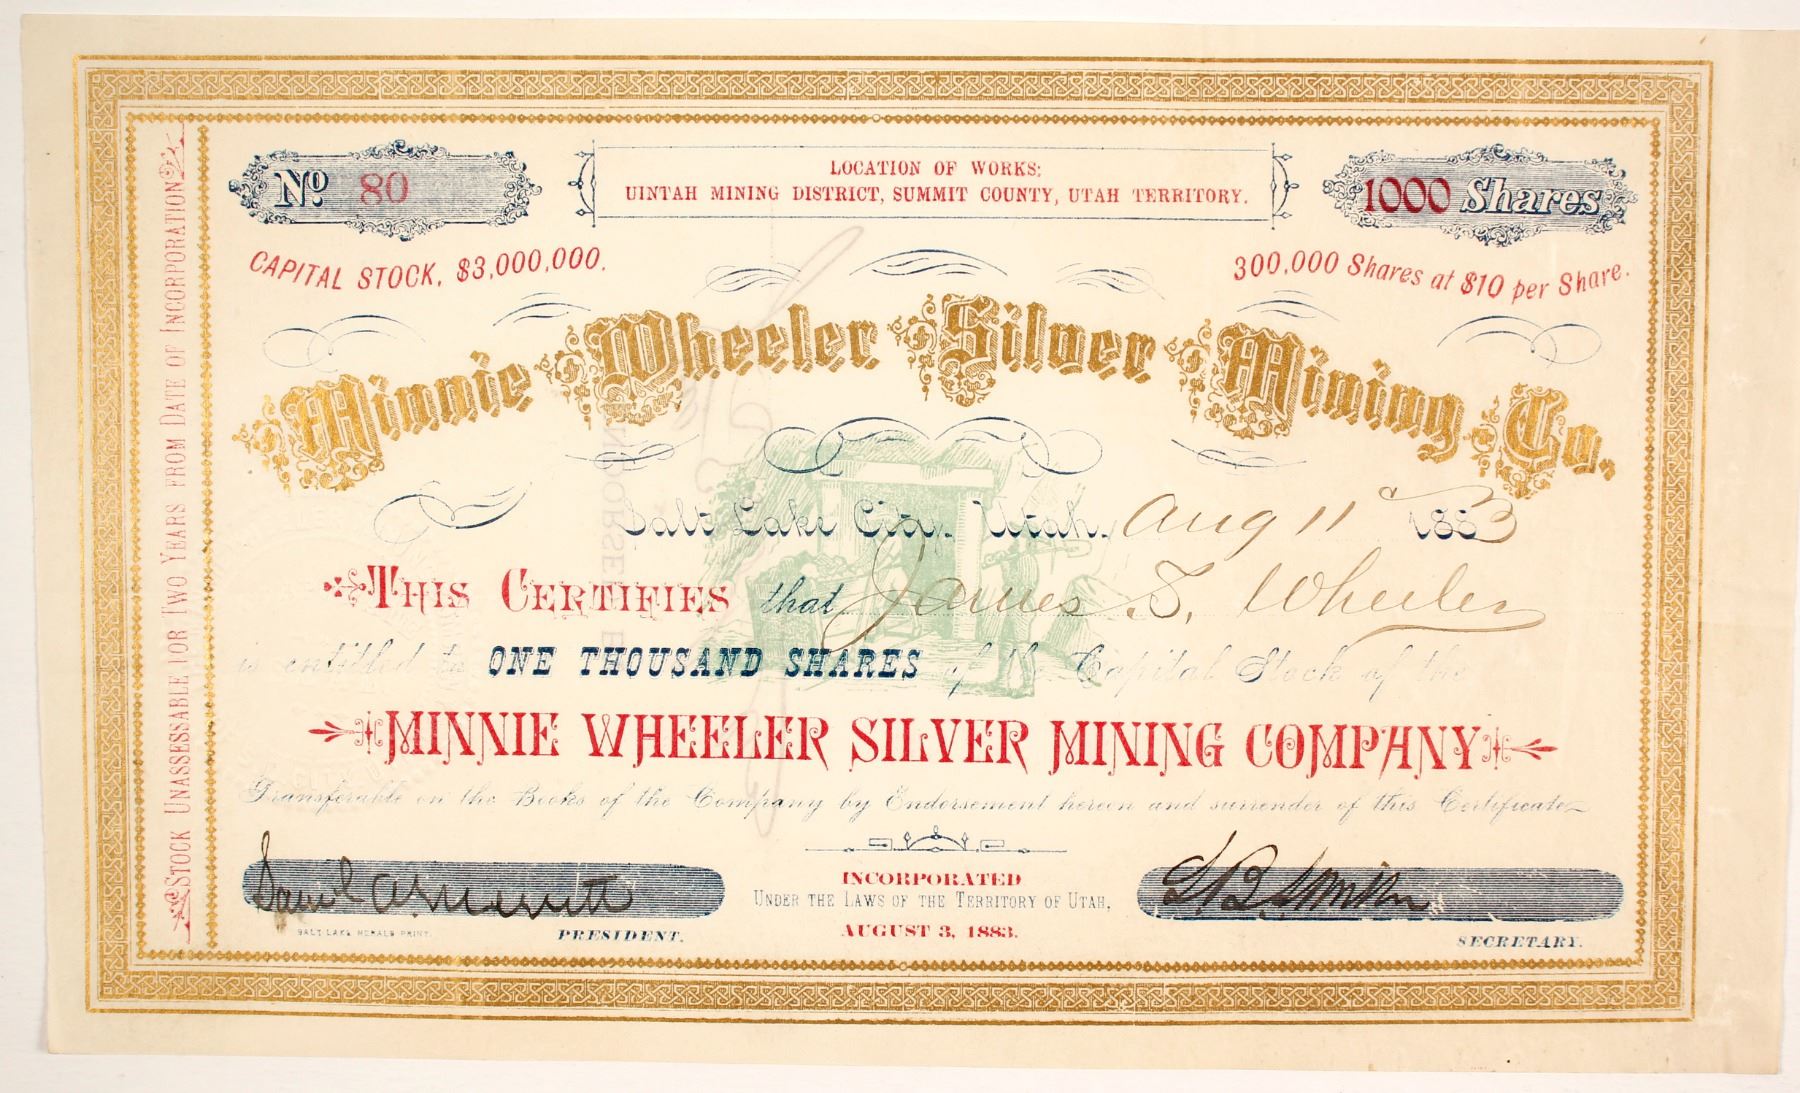 No 80
LOCATION OF WORKS:
UINTAH MINING DISTRICT, SUMMIT COUNTY, UTAH TERRITORY.
1000 Shares
CAPITAL STOCK, $3,000,000.
300,000 Shares at $10 per Share.
Minnie Wheeler Silver Mining Co.
Salt Lake City, Utah, Aug 11 1883
THIS CERTIFIES that James S. Wheeler
is entitled to ONE THOUSAND SHARES of the Capital Stock of the
MINNIE WHEELER SILVER MINING COMPANY
Transferable on the Books of the Company by Endorsement hereon and surrender of this Certificate
Saml A. Merritt
INCORPORATED
UNDER THE LAWS OF THE TERRITORY OF UTAH,
AUGUST 3, 1883.
SALT LAKE HERALD PRINT.
PRESIDENT.
SECRETARY.
STOCK UNASSESSABLE FOR TWO YEARS FROM DATE OF INCORPORATION